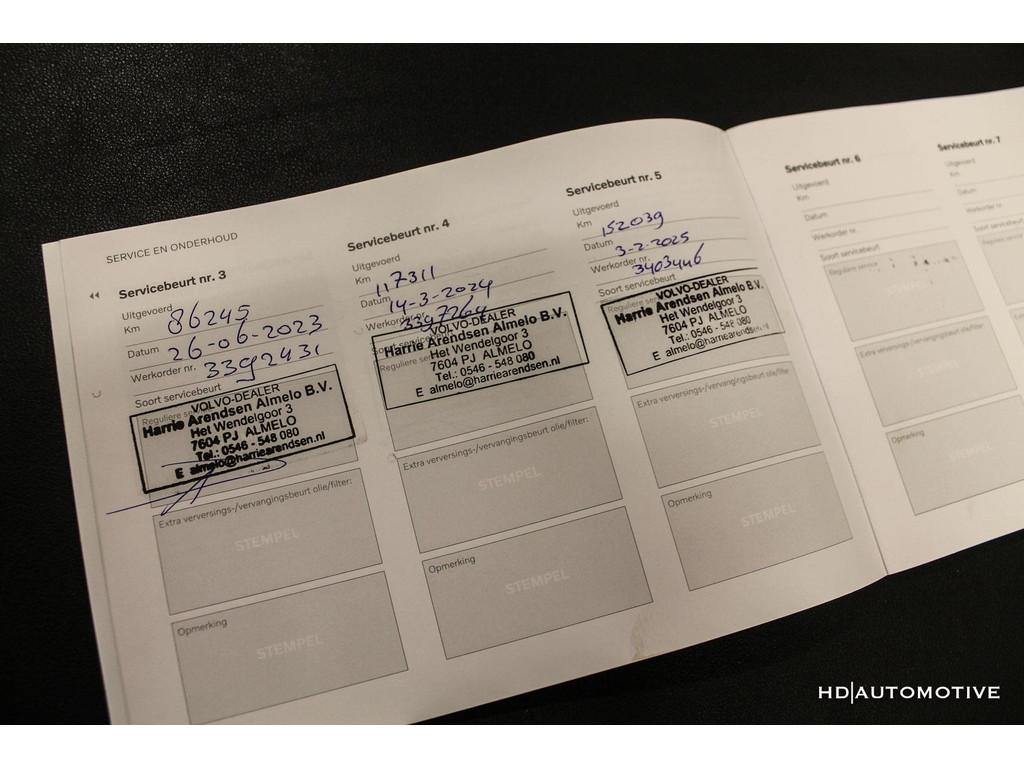 SERVICE EN ONDERHOUD
Servicebeurt nr. 3
Uitgevoerd
Km 86245
Datum 26-06-2023
Werkorder nr. 3392431
Soort servicebeurt
VOLVO-DEALER
Harrie Arendsen Almelo B.V.
Het Wendelgoor 3
7604 PJ ALMELO
Tel.: 0546 - 548 080
E almelo@harriearendsen.nl
Extra verversings-/vervangingsbeurt olie/filter:
STEMPEL
Opmerking
STEMPEL
Servicebeurt nr. 4
Uitgevoerd
Km 117311
Datum 14-3-2024
Werkorder nr. 3397264
VOLVO-DEALER
Harrie Arendsen Almelo B.V.
Het Wendelgoor 3
7604 PJ ALMELO
Tel.: 0546 - 548 080
E almelo@harriearendsen.nl
Extra verversings-/vervangingsbeurt olie/filter:
STEMPEL
Opmerking
STEMPEL
Servicebeurt nr. 5
Uitgevoerd
Km 152039
Datum 3-2-2025
Werkorder nr. 3403446
Soort servicebeurt
VOLVO-DEALER
Harrie Arendsen Almelo B.V.
Het Wendelgoor 3
7604 PJ ALMELO
Tel.: 0546 - 548 080
E almelo@harriearendsen.nl
Extra verversings-/vervangingsbeurt olie/filter
STEMPEL
Opmerking
STEMPEL
Servicebeurt nr. 6
Uitgevoerd
Km
Datum
Werkorder nr.
Soort servicebeurt
Reguliere service
Extra verversings-/vervangingsbeurt olie/filter:
Opmerking
Servicebeurt nr. 7
Uitgevoerd
Km
Datum
Werkorder nr.
HD|AUTOMOTIVE